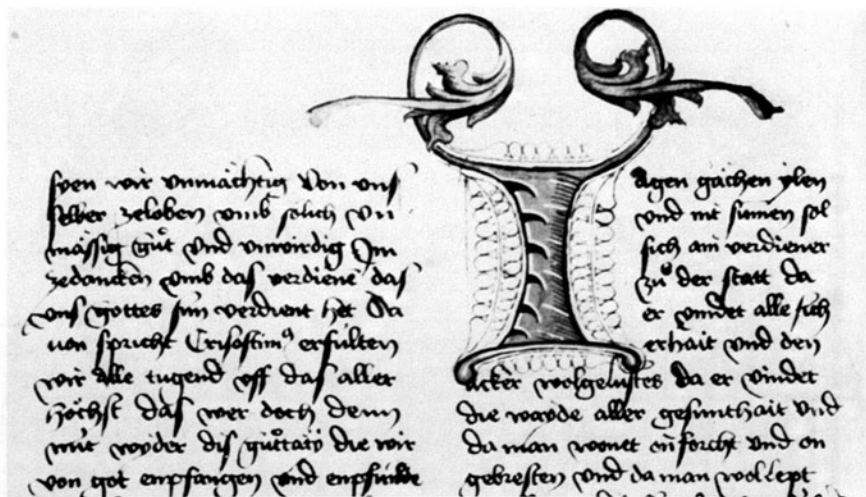 syen wir vnmächtig Von vns
selber zeloben vmb solich Vn
mässig gůt Vnd vnwirdig Im
zedancken vmb das verdienē das
vns gottes sun verdient het Da
uon spricht Crisostimꝰ erfulten
wir alle tugend vff das aller
höchst das wer doch denn
nüt wyder dis gůttäty die wir
von got enpfangen vnd enpfunde
I
Agen gächen ylen
Vnd nit sumen sol
sich ain verdiener
zů der statt da
er vindet alle sich
erhait Vnd den
acker wolgelustes da er vindet
die wayde aller gesunthait Vnd
da man wonet on forcht Vnd on
gebresten Vnd da man wol lept